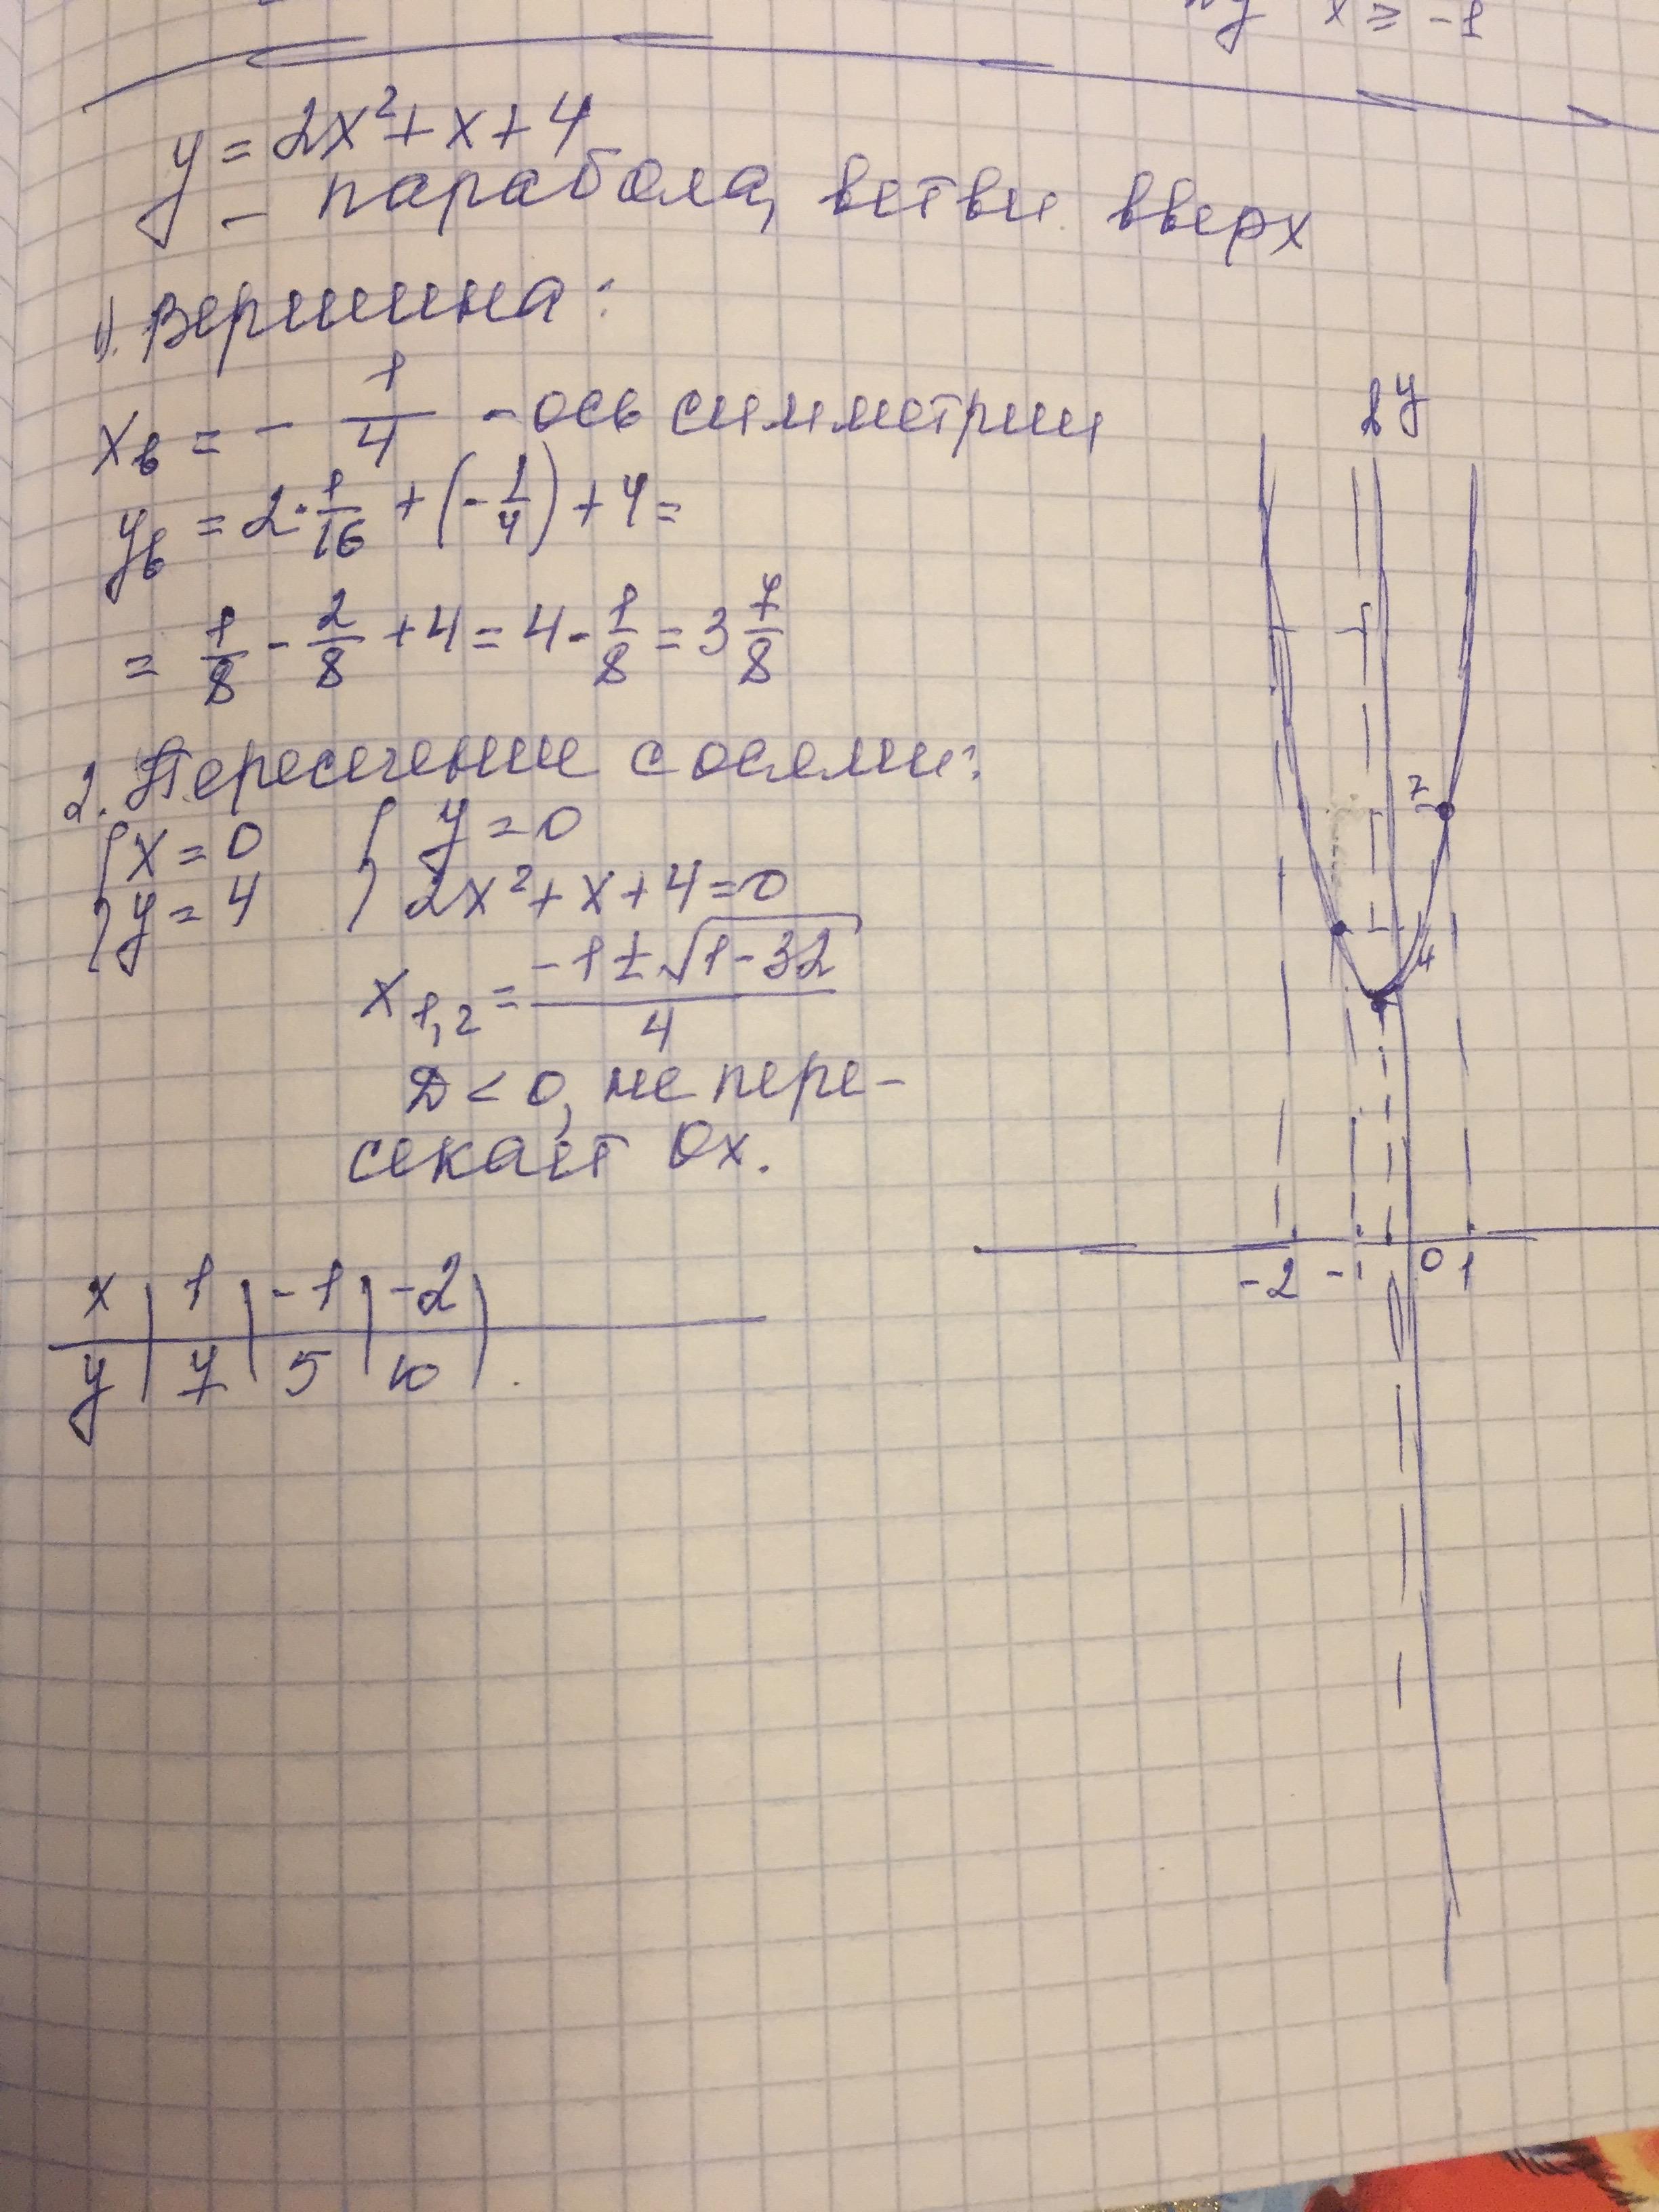 x ≥ -1
y = 2x² + x + 4
- парабола, ветви вверх
1). Вершина:
xв = - 1/4 - ось симметрии
yв = 2·1/16 + (-1/4) + 4 =
= 1/8 - 2/8 + 4 = 4 - 1/8 = 3 7/8
2. Пересечение с осями:
{ x = 0 { y = 0
y = 4 2x² + x + 4 = 0
x1,2 = (-1 ± √(1-32))/4
D < 0, не пере-
секает Ox.
x | 1 | -1 | -2 |
y | 7 | 5 | 10 | .
y
7
4
-2 -1 0 1